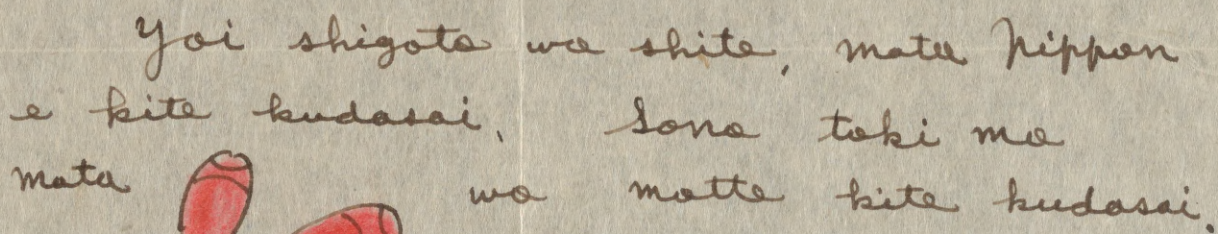 Yoi shigoto wo shite, mata Nippon
e kite kudasai. Sono toki mo
mata wo motte kite kudasai.